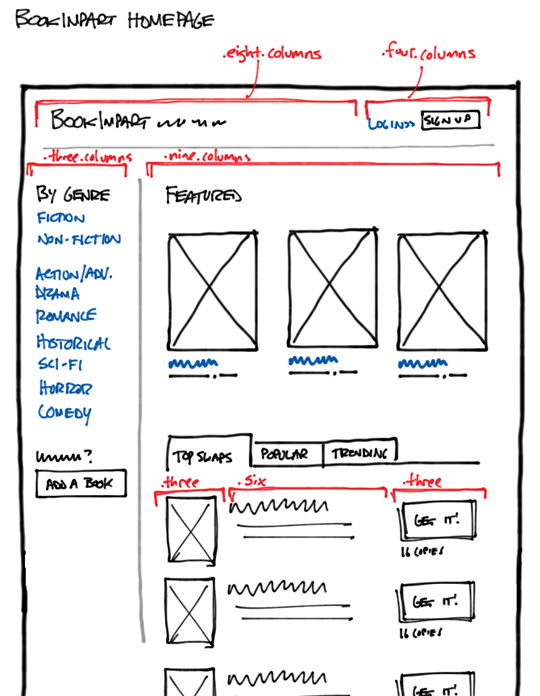 BOOKINPART HOMEPAGE
.eight.columns
.four.columns
BOOKINPART
LOGIN>>
SIGN UP
.three.columns
.nine.columns
BY GENRE
FICTION
NON-FICTION
ACTION/ADV.
DRAMA
ROMANCE
HISTORICAL
SCI-FI
HORROR
COMEDY
?
ADD A BOOK
FEATURED
TOP SWAPS
POPULAR
TRENDING
.three
.six
.three
GET IT!
16 COPIES
GET IT!
16 COPIES
GET IT!